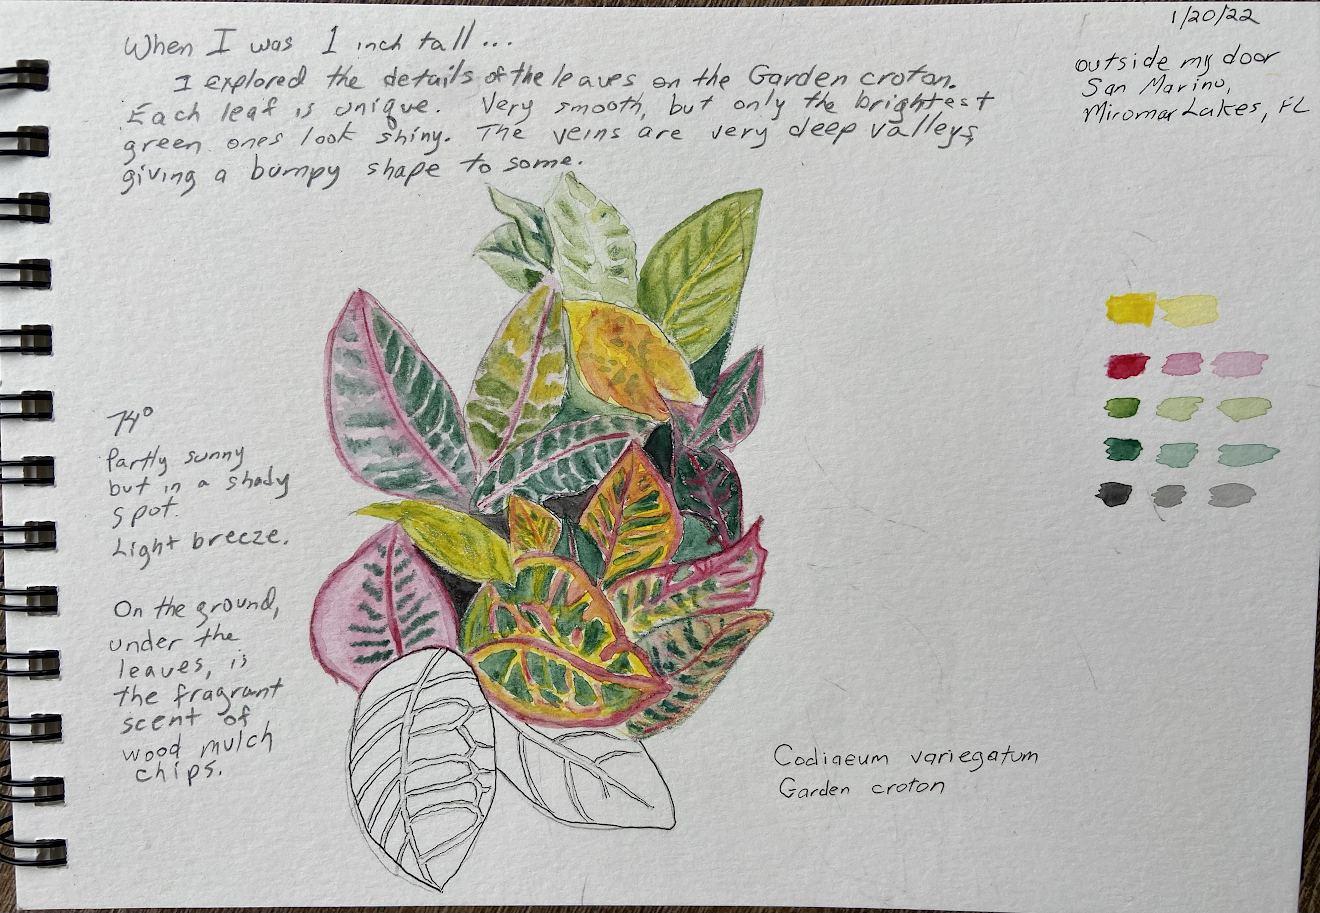 1/20/22
outside my door
San Marino,
Miromar Lakes, FL
When I was 1 inch tall...
I explored the details of the leaves on the Garden croton.
Each leaf is unique. Very smooth, but only the brightest
green ones look shiny. The veins are very deep valleys,
giving a bumpy shape to some.
74°
Partly sunny
but in a shady
spot.
Light breeze.
On the ground,
under the
leaves, is
the fragrant
scent of
wood mulch
chips.
Codiaeum variegatum
Garden croton